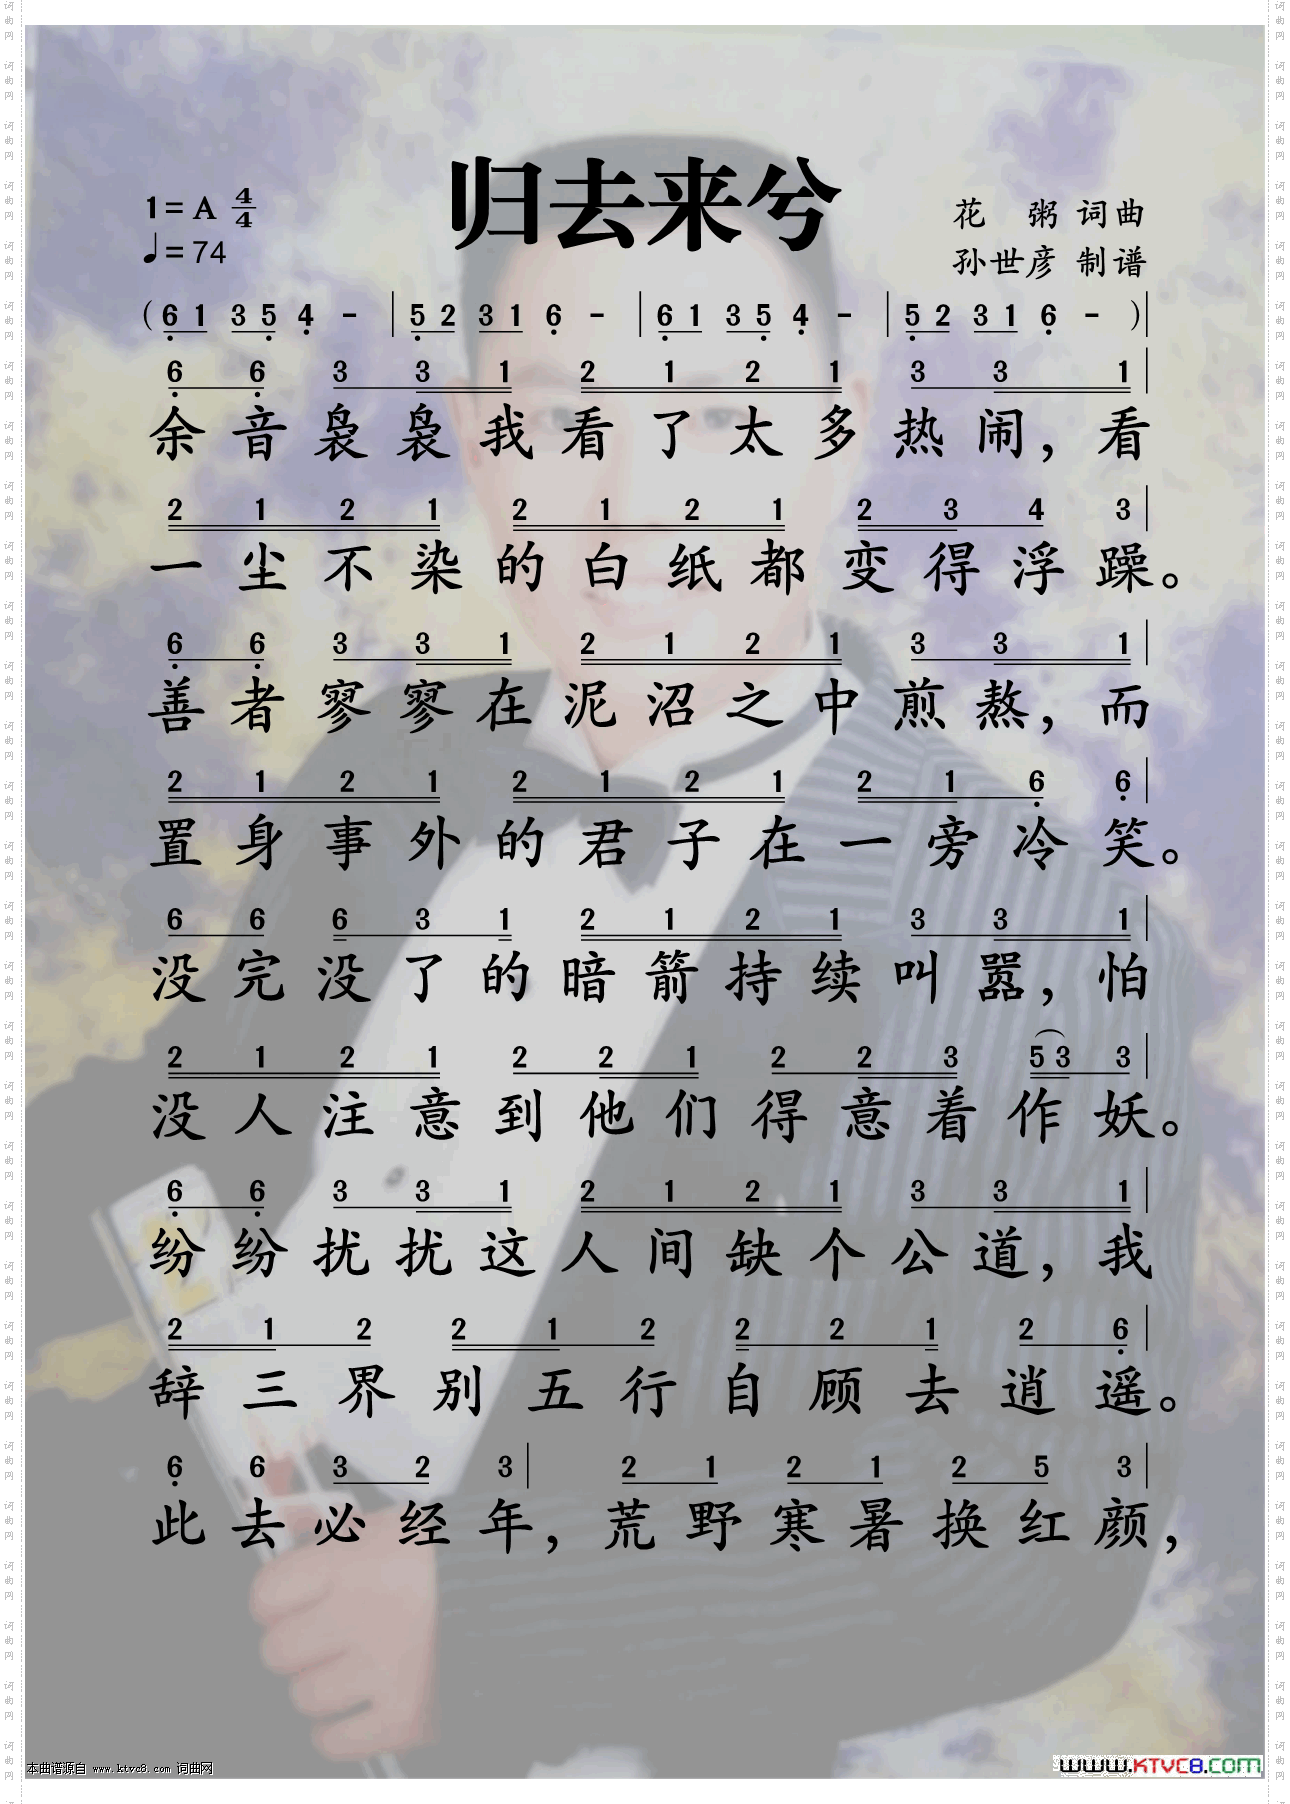 归去来兮
1=A 4/4
♩=74
花 粥 词曲
孙世彦 制谱
( 6̣ 1 3 5̣ 4̣ - | 5̣ 2 3 1 6̣ - | 6̣ 1 3 5̣ 4̣ - | 5̣ 2 3 1 6̣ - ) |
6̣ 6̣ 3 3 1 2 1 2 1 3 3 1 |
余音袅袅我看了太多热闹，看
2 1 2 1 2 1 2 1 2 3 4 3 |
一尘不染的白纸都变得浮躁。
6̣ 6̣ 3 3 1 2 1 2 1 3 3 1 |
善者寥寥在泥沼之中煎熬，而
2 1 2 1 2 1 2 1 2 1 6̣ 6̣ |
置身事外的君子在一旁冷笑。
6 6 6 3 1 2 1 2 1 3 3 1 |
没完没了的暗箭持续叫嚣，怕
2 1 2 1 2 2 1 2 2 3 5 3 3 |
没人注意到他们得意着作妖。
6̣ 6̣ 3 3 1 2 1 2 1 3 3 1 |
纷纷扰扰这人间缺个公道，我
2 1 2 2 1 2 2 2 1 2 6̣ |
辞三界别五行自顾去逍遥。
6̣ 6 3 2 3 | 2 1 2 1 2 5 3 |
此去必经年，荒野寒暑换红颜，
本曲谱源自 www.ktvc8.com 词曲网
www.KTVC8.COM